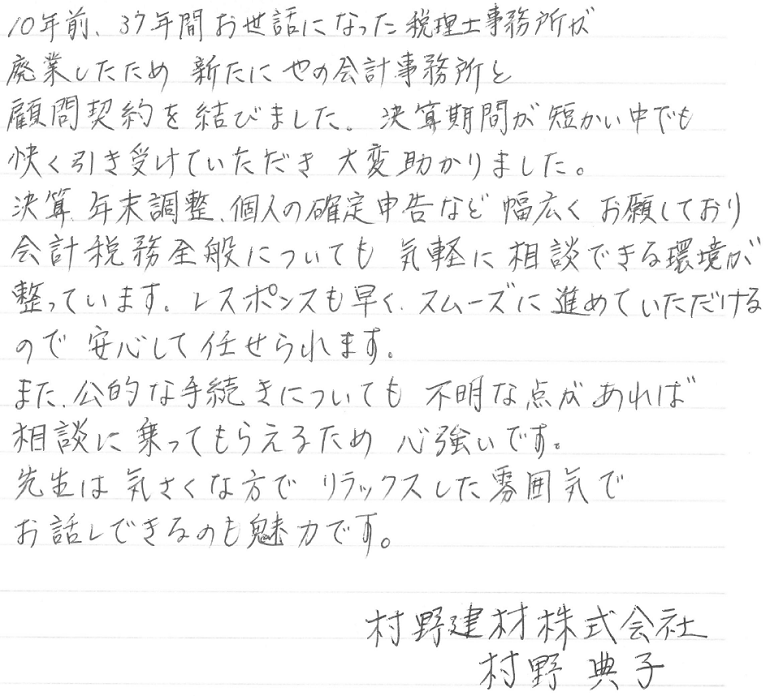 10年前、37年間お世話になった税理士事務所が
廃業したため 新たにやの会計事務所と
顧問契約を結びました。決算期間が短かい中でも
快く引き受けていただき 大変助かりました。
決算、年末調整、個人の確定申告など 幅広く お願いしており
会計税務全般についても 気軽に相談できる環境が
整っています。レスポンスも早く、スムーズに進めていただける
ので 安心して任せられます。
また、公的な手続きについても 不明な点があれば
相談に乗ってもらえるため 心強いです。
先生は気さくな方で リラックスした雰囲気で
お話しできるのも魅力です。
村野建材株式会社
村野 典子